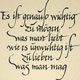 Es ist genauso wichtig
zu mögen
was man liebt
wie es wichtig ist
zu lieben
was man mag